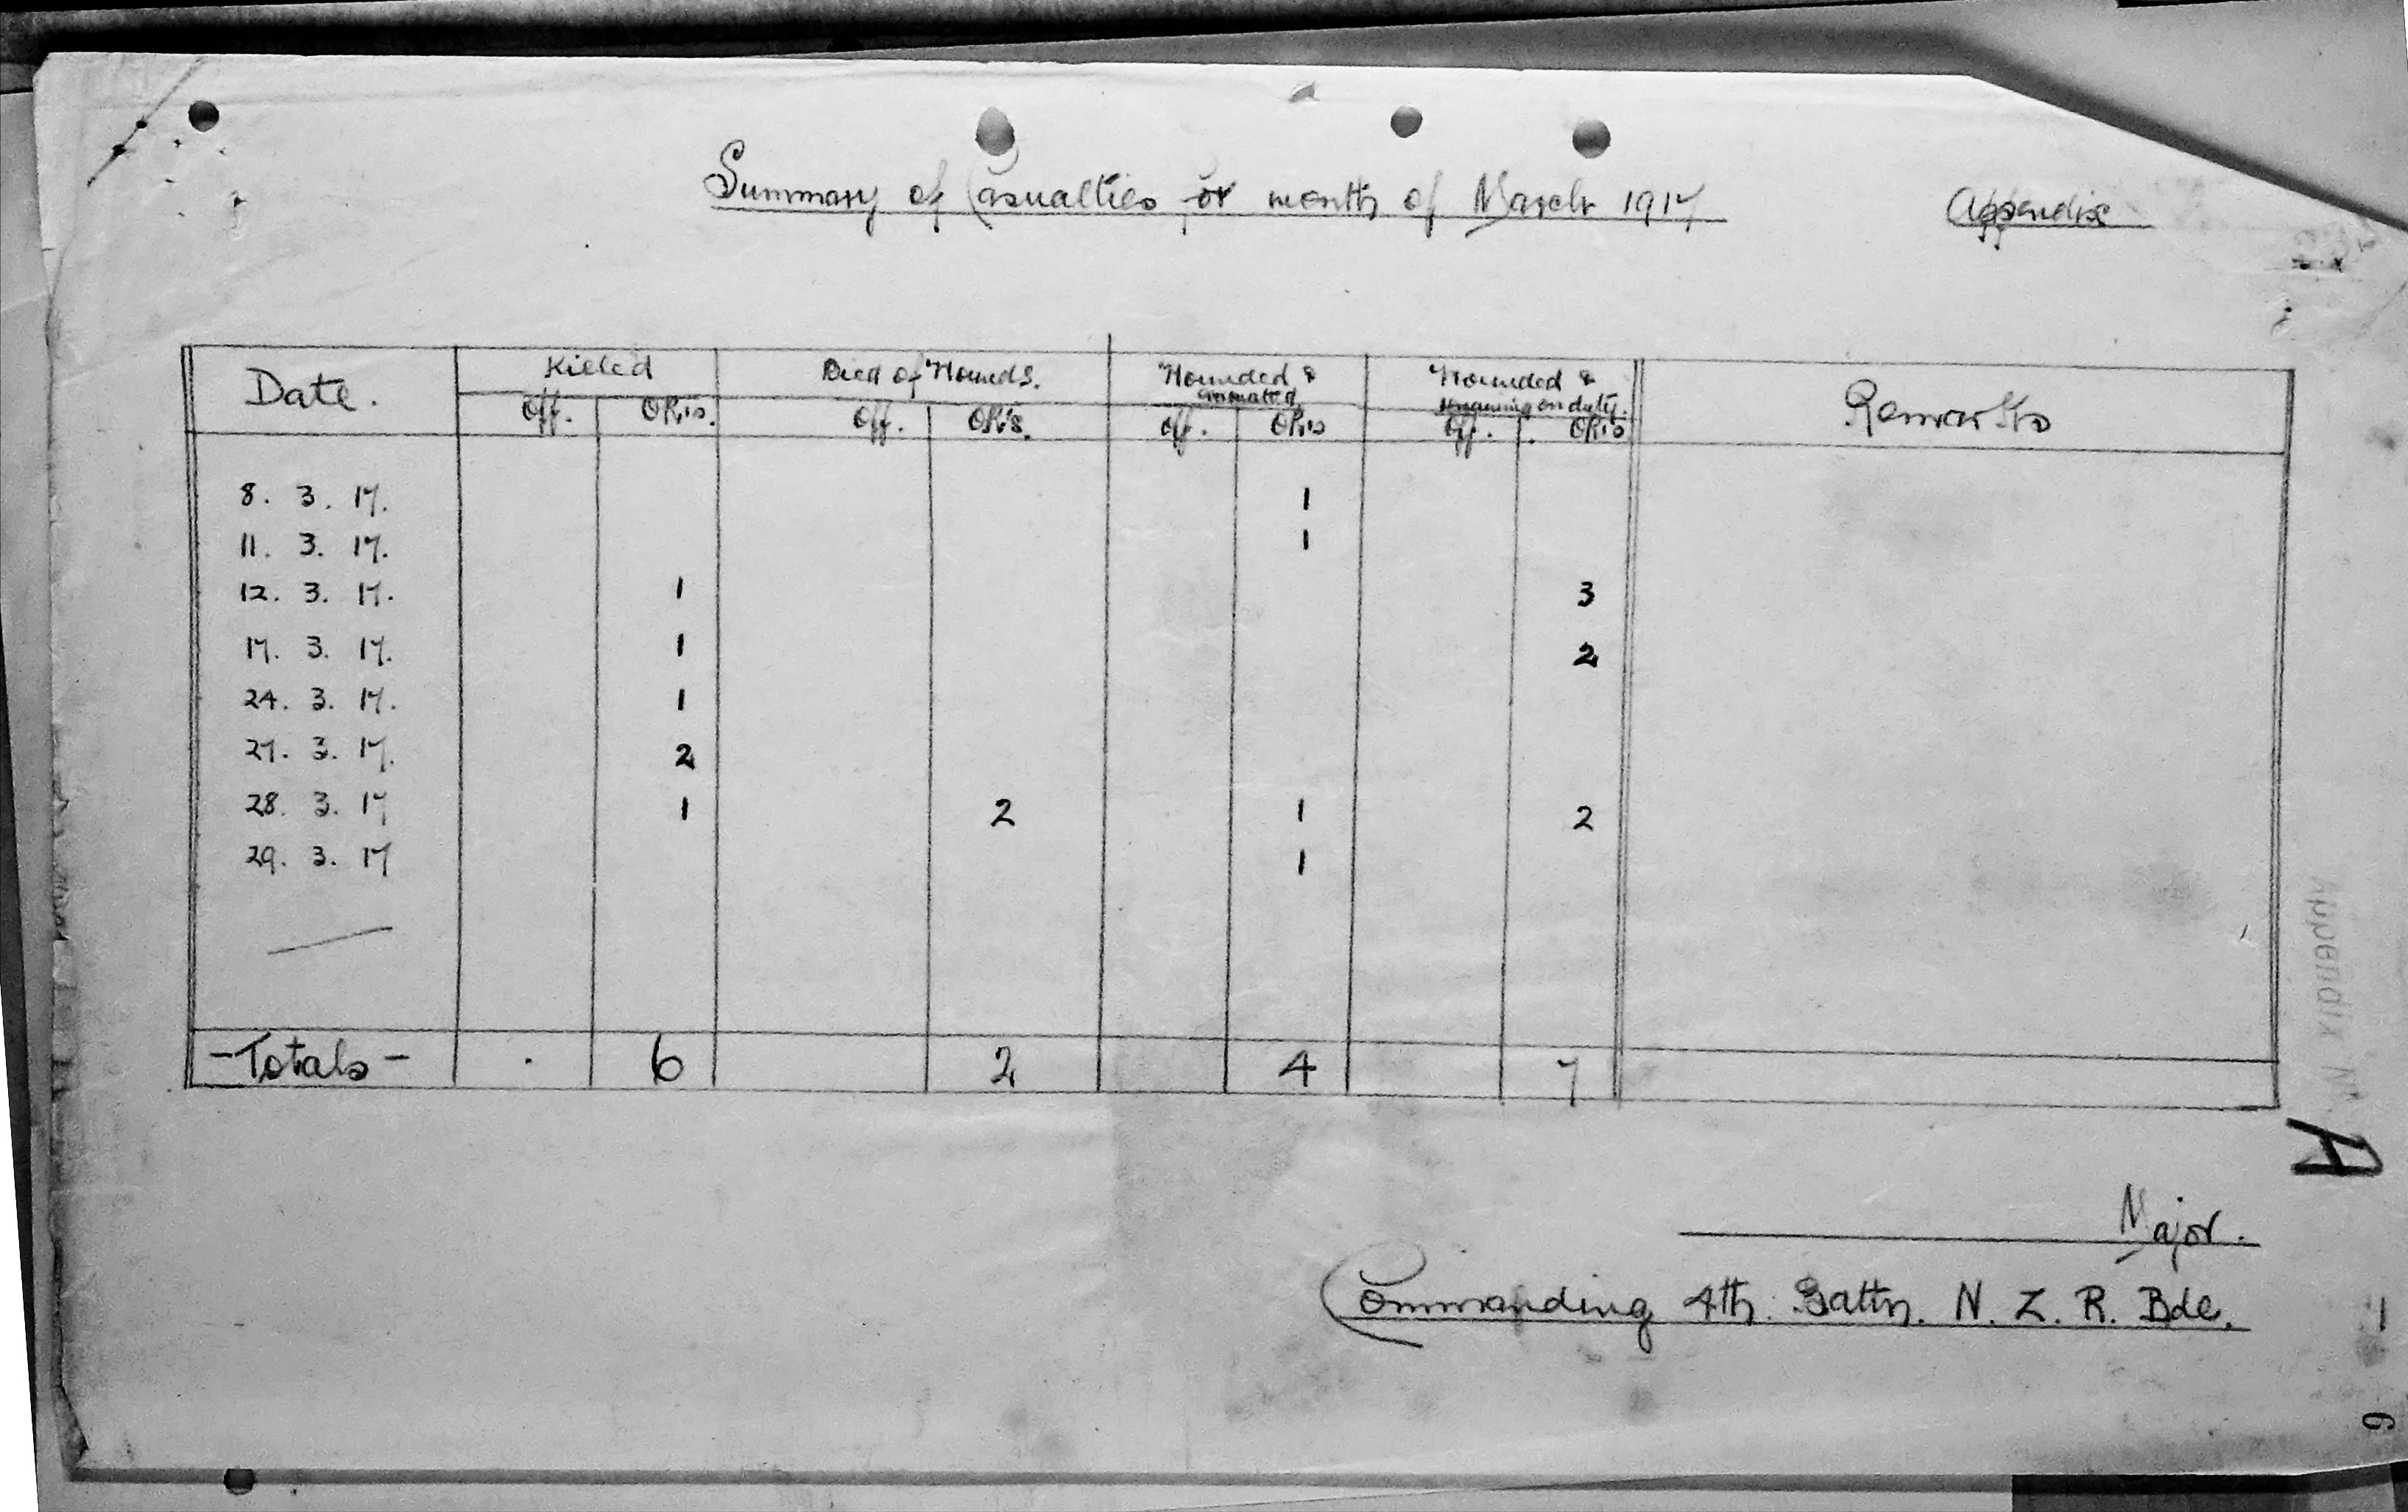 Summary of Casualties for month of March 1917
Appendix
Date. Killed Died of Wounds. Wounded & evacuated Wounded & remaining on duty. Remarks
Off. ORis. Off. ORis. Off. ORis Off. ORis
8. 3. 17. 1
11. 3. 17. 1
12. 3. 17. 1 3
17. 3. 17. 1 2
24. 3. 17. 1
27. 3. 17. 2
28. 3. 17 1 2 1 2
29. 3. 17 1
-Totals- . 6 2 4 7
Major.
Commanding 4th. Battn. N. Z. R. Bde.
Appendix No
A